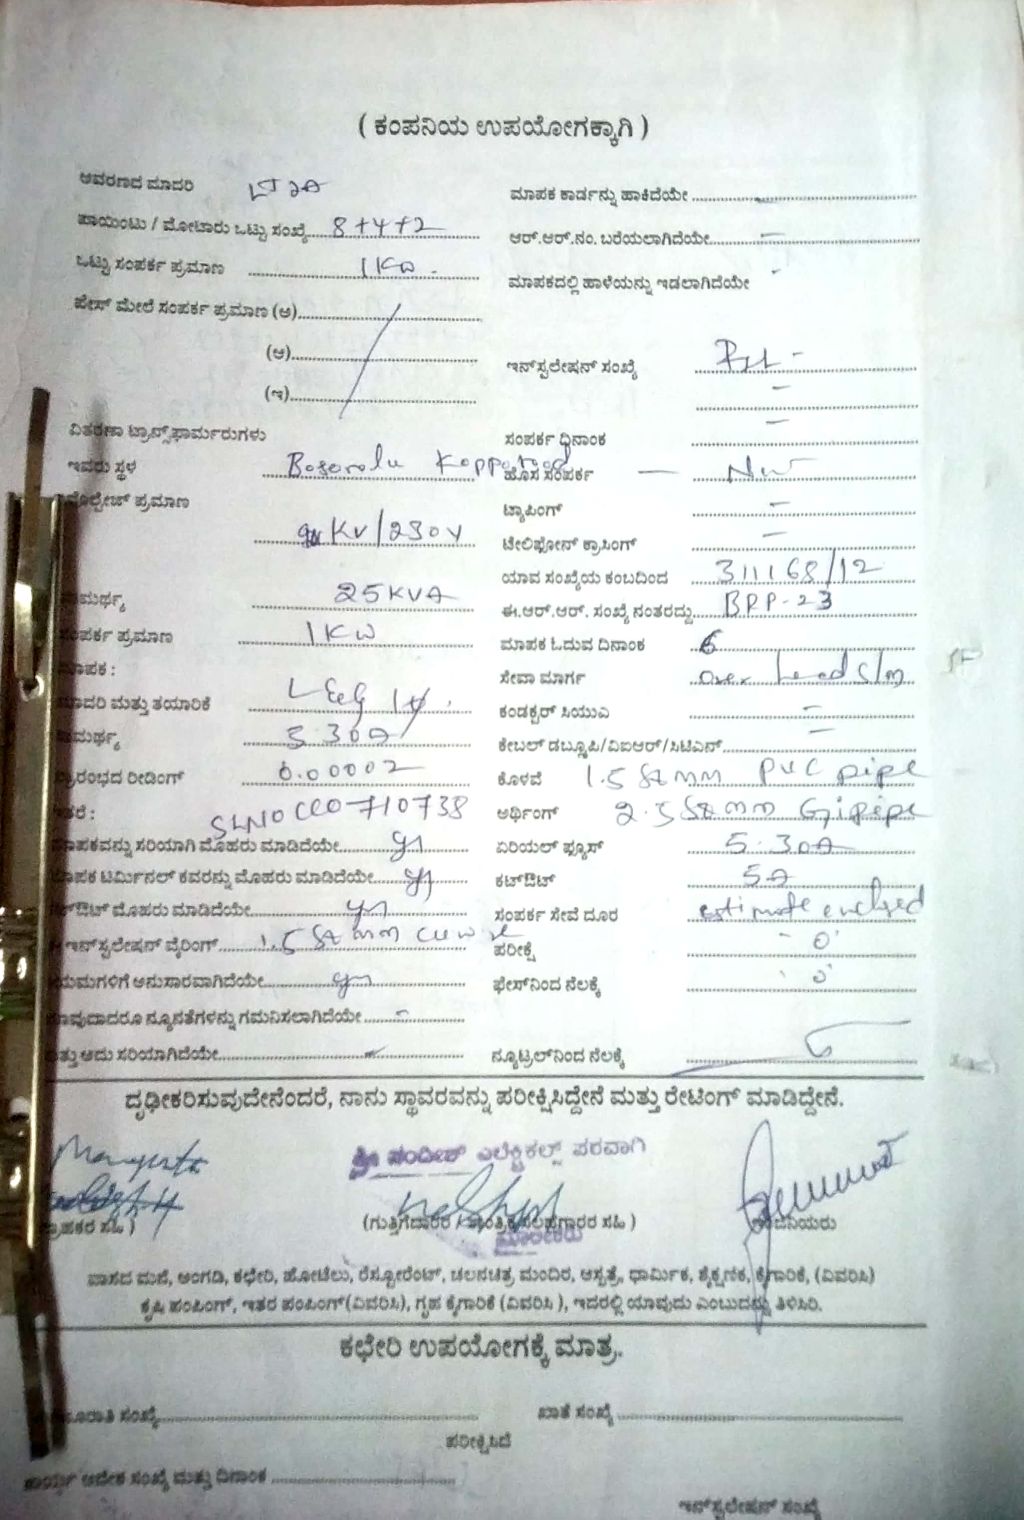 ( ಕಂಪನಿಯ ಉಪಯೋಗಕ್ಕಾಗಿ )
ಆವರಣದ ಮಾದರಿ LT 2A
ಮಾಪಕ ಕಾರ್ಡನ್ನು ಹಾಕಿದೆಯೇ
ಪಾಯಿಂಟು / ಮೋಟಾರು ಒಟ್ಟು ಸಂಖ್ಯೆ 8+4+2
ಆರ್.ಆರ್.ನಂ. ಬರೆಯಲಾಗಿದೆಯೇ
ಒಟ್ಟು ಸಂಪರ್ಕ ಪ್ರಮಾಣ 1 KW
ಮಾಪಕದಲ್ಲಿ ಹಾಳೆಯನ್ನು ಇಡಲಾಗಿದೆಯೇ
ಫೇಸ್ ಮೇಲೆ ಸಂಪರ್ಕ ಪ್ರಮಾಣ (ಅ)
(ಆ)
ಇನ್‌ಸ್ಟಲೇಷನ್ ಸಂಖ್ಯೆ
(ಇ)
ವಿತರಣಾ ಟ್ರಾನ್ಸ್‌ಫಾರ್ಮರುಗಳು
ಸಂಪರ್ಕ ದಿನಾಂಕ
ಇವರು ಸ್ಥಳ
ಹೊಸ ಸಂಪರ್ಕ — New
ವೋಲ್ಟೇಜ್ ಪ್ರಮಾಣ KV/230V
ಟ್ಯಾಪಿಂಗ್
ಟೆಲಿಫೋನ್ ಕ್ರಾಸಿಂಗ್
ಯಾವ ಸಂಖ್ಯೆಯ ಕಂಬದಿಂದ 311168/12
25KVA
ಈ.ಆರ್.ಆರ್. ಸಂಖ್ಯೆ ನಂತರದ್ದು BRP-23
ಸಂಪರ್ಕ ಪ್ರಮಾಣ 1KW
ಮಾಪಕ ಓದುವ ದಿನಾಂಕ 6
ಮಾಪಕ :
ಸೇವಾ ಮಾರ್ಗ over head
ಮಾದರಿ ಮತ್ತು ತಯಾರಿಕೆ
ಕಂಡಕ್ಟರ್ ಸಿಯುವಿ
5.30A
ಕೇಬಲ್ ಡಬ್ಲೂಪಿ/ವಿಐಆರ್/ಸಿಟಿಎಸ್
ಪ್ರಾರಂಭದ ರೀಡಿಂಗ್ 0.00002
ಕೊಳವೆ 1.5 mm PVC pipe
ಇತರೆ : SLNO 710738
ಅರ್ಥಿಂಗ್ 2.5 mm GI pipe
ಮಾಪಕವನ್ನು ಸರಿಯಾಗಿ ಮೊಹರು ಮಾಡಿದೆಯೇ
ಏರಿಯಲ್ ಫ್ಯೂಸ್ 5.30A
ಮಾಪಕ ಟರ್ಮಿನಲ್ ಕವರನ್ನು ಮೊಹರು ಮಾಡಿದೆಯೇ
ಕಟ್‌ಔಟ್ 5A
ಕಟ್‌ಔಟ್ ಮೊಹರು ಮಾಡಿದೆಯೇ
ಸಂಪರ್ಕ ಸೇವೆ ದೂರ estimate enclosed
ಇನ್‌ಸ್ಟಲೇಷನ್ ವೈರಿಂಗ್ 1.5
ಪರೀಕ್ಷೆ 0
ನಿಯಮಗಳಿಗೆ ಅನುಸಾರವಾಗಿದೆಯೇ
ಫೇಸ್‌ನಿಂದ ನೆಲಕ್ಕೆ 0
ಯಾವುದಾದರೂ ನ್ಯೂನತೆಗಳನ್ನು ಗಮನಿಸಲಾಗಿದೆಯೇ
ಮತ್ತು ಅದು ಸರಿಯಾಗಿದೆಯೇ
ನ್ಯೂಟ್ರಲ್‌ನಿಂದ ನೆಲಕ್ಕೆ
ದೃಢೀಕರಿಸುವುದೇನೆಂದರೆ, ನಾನು ಸ್ಥಾವರವನ್ನು ಪರೀಕ್ಷಿಸಿದ್ದೇನೆ ಮತ್ತು ರೇಟಿಂಗ್ ಮಾಡಿದ್ದೇನೆ.
ಶ್ರೀ ಸಂದೀಪ್ ಎಲೆಕ್ಟ್ರಿಕಲ್ಸ್ ಪರವಾಗಿ
ಗ್ರಾಹಕರ ಸಹಿ )
(ಗುತ್ತಿಗೆದಾರರ / ತಾಂತ್ರಿಕ ಸಲಹೆಗಾರರ ಸಹಿ )
ಮಾಲೀಕರು
ವಾಸದ ಮನೆ, ಅಂಗಡಿ, ಕಛೇರಿ, ಹೋಟೆಲು, ರೆಸ್ಟೋರೆಂಟ್, ಚಲನಚಿತ್ರ ಮಂದಿರ, ಆಸ್ಪತ್ರೆ, ಧಾರ್ಮಿಕ, ಶೈಕ್ಷಣಿಕ, ಕೈಗಾರಿಕೆ, (ವಿವರಿಸಿ)
ಕೃಷಿ ಪಂಪಿಂಗ್, ಇತರ ಪಂಪಿಂಗ್(ವಿವರಿಸಿ), ಗೃಹ ಕೈಗಾರಿಕೆ (ವಿವರಿಸಿ ), ಇದರಲ್ಲಿ ಯಾವುದು ಎಂಬುದನ್ನು ತಿಳಿಸಿರಿ.
ಕಛೇರಿ ಉಪಯೋಗಕ್ಕೆ ಮಾತ್ರ.
ಸಂಖ್ಯೆ
ಖಾತೆ ಸಂಖ್ಯೆ
ಪರೀಕ್ಷಿಸಿದೆ
ಕಾರ್ಯ ಆದೇಶ ಸಂಖ್ಯೆ ಮತ್ತು ದಿನಾಂಕ
ಇನ್‌ಸ್ಟಲೇಷನ್ ಸಂಖ್ಯೆ